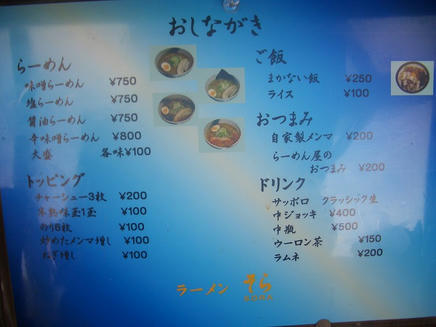 おしながき
らーめん
味噌らーめん ¥750
塩らーめん ¥750
醤油らーめん ¥750
辛味噌らーめん ¥800
大盛 各味¥100
トッピング
チャーシュー3枚 ¥200
半熟味玉1玉 ¥100
のり6枚 ¥100
炒めたメンマ増し ¥100
ねぎ増し ¥100
ご飯
まかない飯 ¥250
ライス ¥100
おつまみ
自家製メンマ ¥200
らーめん屋の
おつまみ ¥200
ドリンク
サッポロ クラッシック生
中ジョッキ ¥400
中瓶 ¥500
ウーロン茶 ¥150
ラムネ ¥200
ラーメン そら